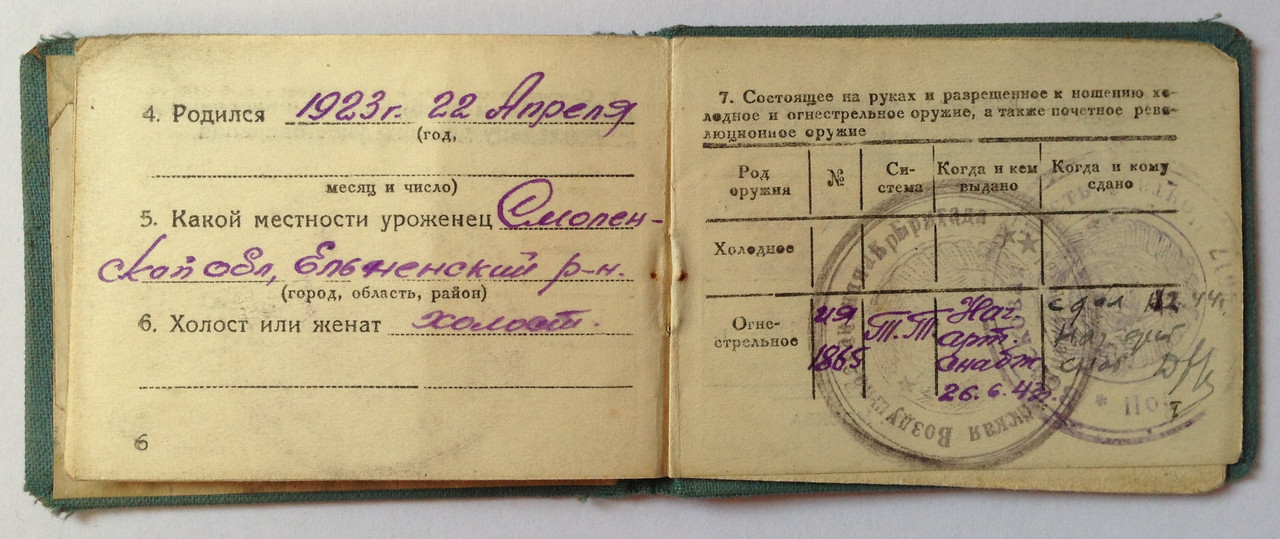 4. Родился 1923г. 22 Апреля
(год,
месяц и число)
5. Какой местности уроженец Смолен-
ской обл, Ельненский р-н.
(город, область, район)
6. Холост или женат холост.
6
7. Состоящее на руках и разрешенное к ношению хо-
лодное и огнестрельное оружие, а также почетное рево-
люционное оружие
Род оружия № Си-стема Когда и кем выдано Когда и кому сдано
Холодное
Огне-
стрельное
1865
Т.Т
Нач.
арт.
снабж
26.6.43г.
сдал 12.44г.
Нач арт
снаб
7
бригада
Воздуш